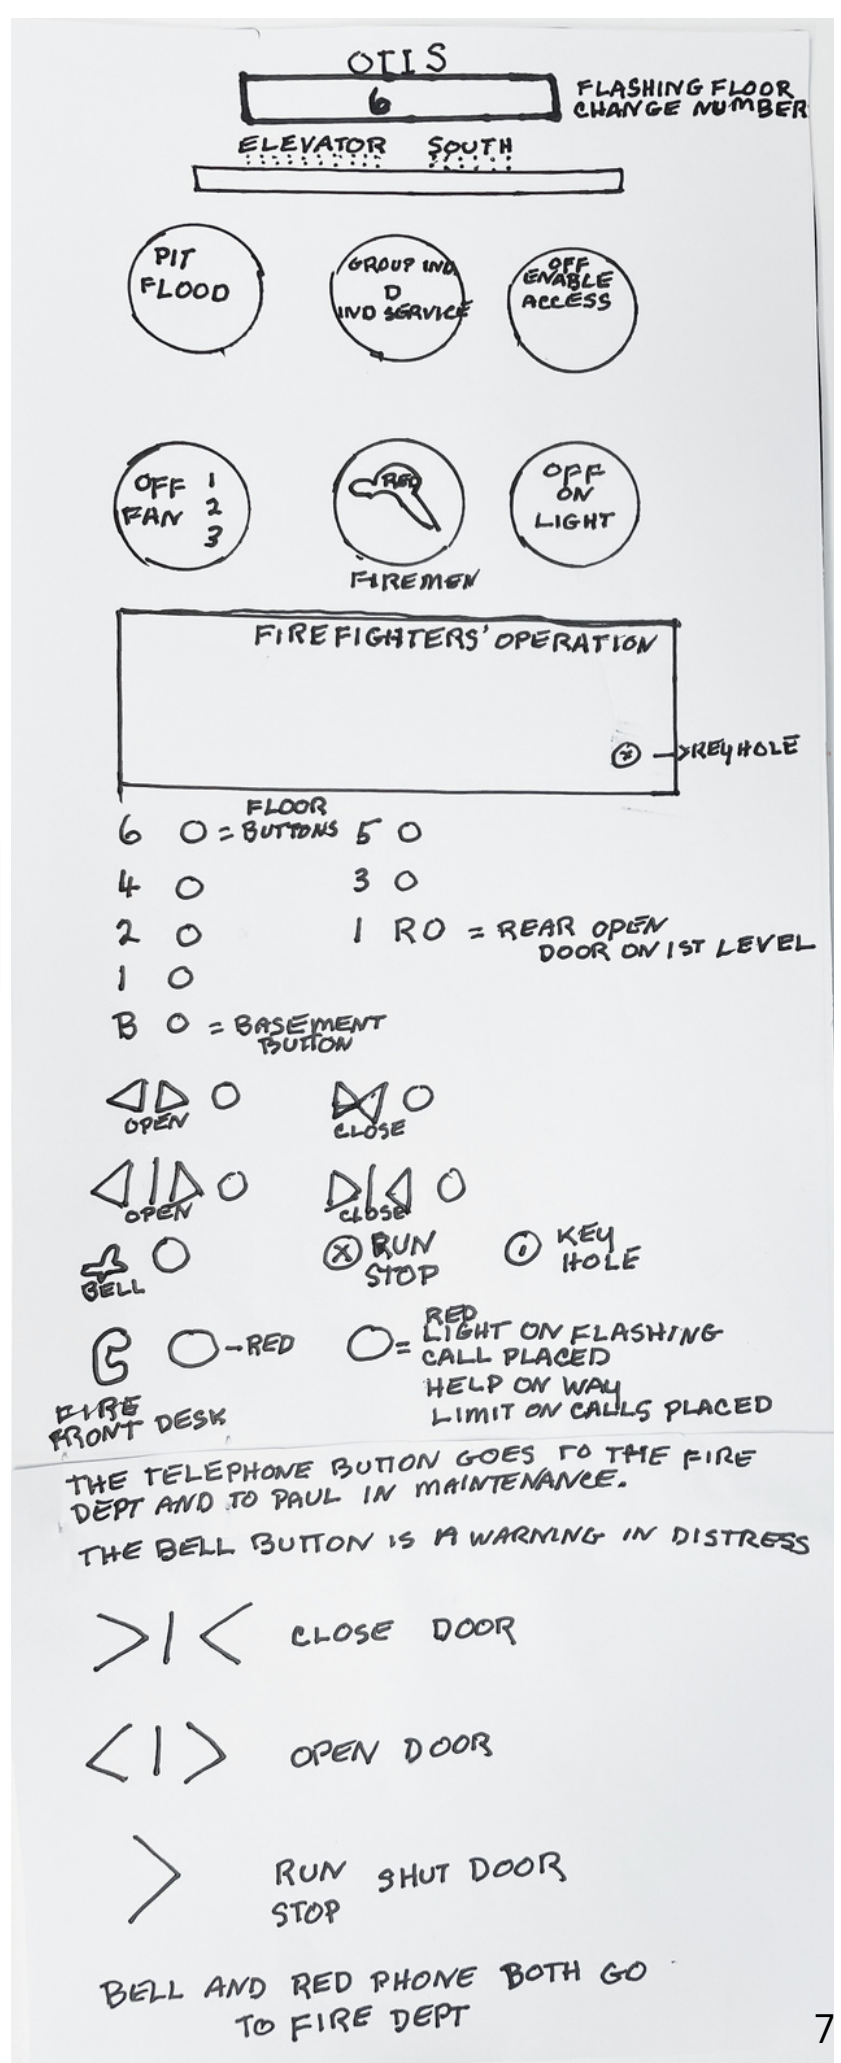 OTIS
6
FLASHING FLOOR
CHANGE NUMBER
ELEVATOR SOUTH
PIT
FLOOD
GROUP IND
D
IND SERVICE
OFF
ENABLE
ACCESS
OFF 1
FAN 2
3
RED
FIREMEN
OFF
ON
LIGHT
FIREFIGHTERS' OPERATION
KEYHOLE
6 O = FLOOR BUTTONS 5 O
4 O 3 O
2 O 1 RO = REAR OPEN
DOOR ON 1ST LEVEL
1 O
B O = BASEMENT
BUTTON
OPEN CLOSE
OPEN CLOSE
BELL
X RUN
STOP
KEY
HOLE
FIRE
FRONT DESK
-RED
= RED
LIGHT ON FLASHING
CALL PLACED
HELP ON WAY
LIMIT ON CALLS PLACED
THE TELEPHONE BUTTON GOES TO THE FIRE
DEPT AND TO PAUL IN MAINTENANCE.
THE BELL BUTTON IS A WARNING IN DISTRESS
>|< CLOSE DOOR
<|> OPEN DOOR
> RUN SHUT DOOR
STOP
BELL AND RED PHONE BOTH GO
TO FIRE DEPT
7